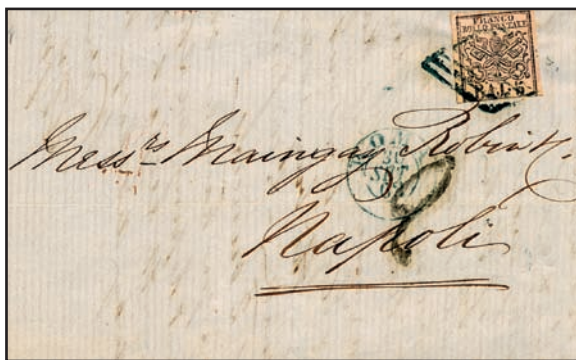 FRANCO
BOLLO POSTALE
BAJ. 5
Mess.rs Maingay Robin &
30
SET
Napoli